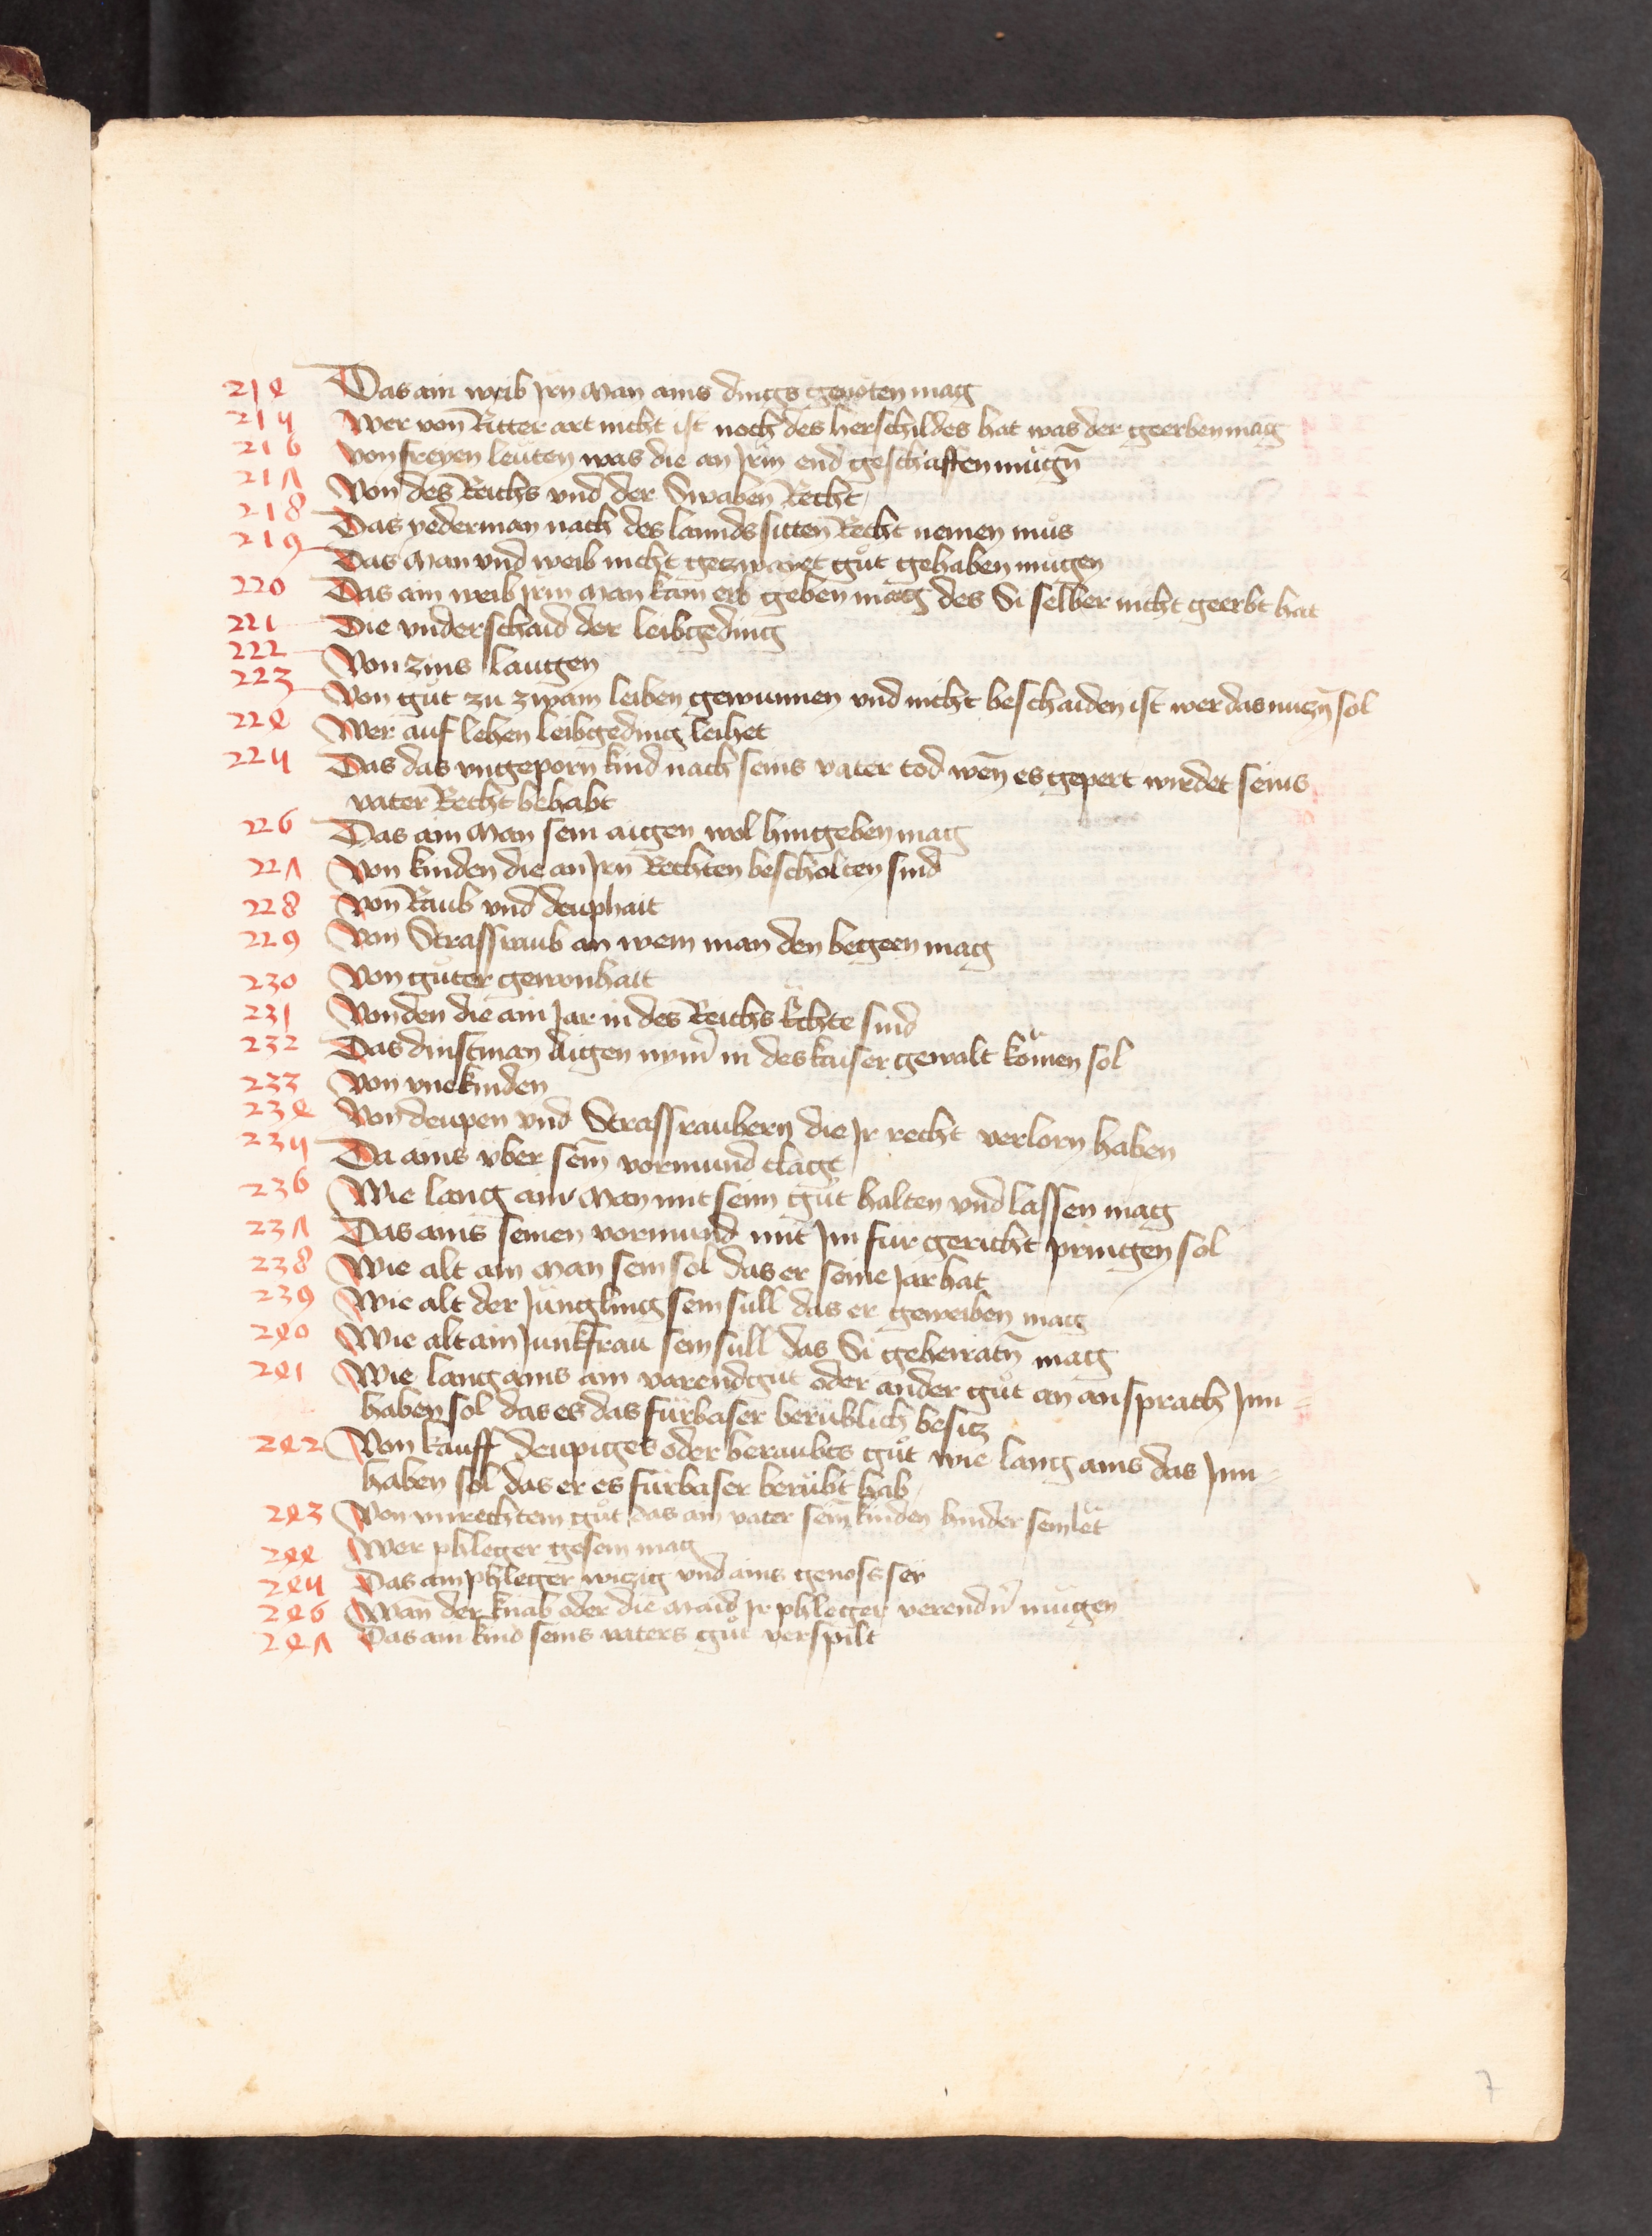 214 Das ain weib Jrn Man ains dings genoten mag
215 Wer von Ritter art nicht ist noch des herschildes hat was der geerben mag
216 von freyen leuten was die an Jrm end geschaffen mugn̄
217 Von des Reichs vnd der Swaben Recht
218 Das yederman nach des lannds sitten Recht nemen mus
219 Das Man vnd weib nicht gezwayet gůt gehaben mugen
220 Das ain weib Jrm Man kain erb geben mag des Si selber nicht geerbt hat
221 Die vnderschaid der leibgeding
222 Von zins laugen
223 Von gůt zu zwain leiben gewunnen vnd nicht beschaiden ist wer das nuczn̄ sol
224 Wer auf lehen leibgeding leihet
225 Das das vngeporn kind nach seins vater tod wen̄ es gepert wirdet seins
vater Recht behabt
226 Das ain Man sein aigen wol hingeben mag
227 Von kinden die an Jrn Rechten bescholten sind
228 Von Raub vnd deuphait
229 Von Strassraub an wem man den begeen mag
230 Von guter gewonhait
231 Von den die ain Jar in des Reichs Achte sind
232 Das dinstman aigen nym̄ in des kaiser gewalt kom̄en sol
233 Von vnekinden
234 Von deupen vnd Strassraubern die Jr recht verlorn haben
235 Da ains vber sein̄ vormund clagt
236 Wie lang ain Man mit seim gůt halten vnd lassen mag
237 Das ains seinen vormund mit Jm fur gericht pringen sol
238 Wie alt ain Man sein sol das er seine Jar hat
239 Wie alt der Jungling sein sull das er geweiben mag
240 Wie alt ain Junkfrau sein sull das Si geheiratn̄ mag
241 Wie lang ains ain varendgut oder ander gůt an ansprach Jnn-
haben sol das es das furbaser berublich besicz
242 Von kauff deupiges oder beraubtes gůt wie lang ains das Jnn-
haben sol das er es furbaser berubt hab
243 Von vnrechtem gůt das ain vater sein kinden hinder sein let
244 Wer phleger gesein mag
245 Das ain phleger wiczig vnd ains genoss sey
246 Wan̄ der knab oder die Maid Jr phleger verendn̄ mugen
247 Das ain kind seins vaters gůt verspilt
7